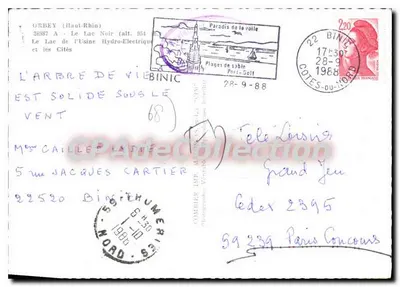 ORBEY (Haut-Rhin)
36887 A - Le Lac Noir (alt. 954
Le Lac de l'Usine Hydro-Electrique
et les Cités
L'ARBRE DE VIE
EST SOLIDE SOUS LE
VENT
(68)
Mme CAILLE
5 rue JACQUES CARTIER
22520 Binic
Paradis de la voile
Plages de sable
Port-
BINIC
28-9-88
22 BINIC
17H30
28-9
1988
COTES-DU-NORD
2,20
Tele Loisirs
Grand Jeu
Cedex 2395
59239 Paris Concours
59 THUMERIES
6H30
1-10
1988
NORD